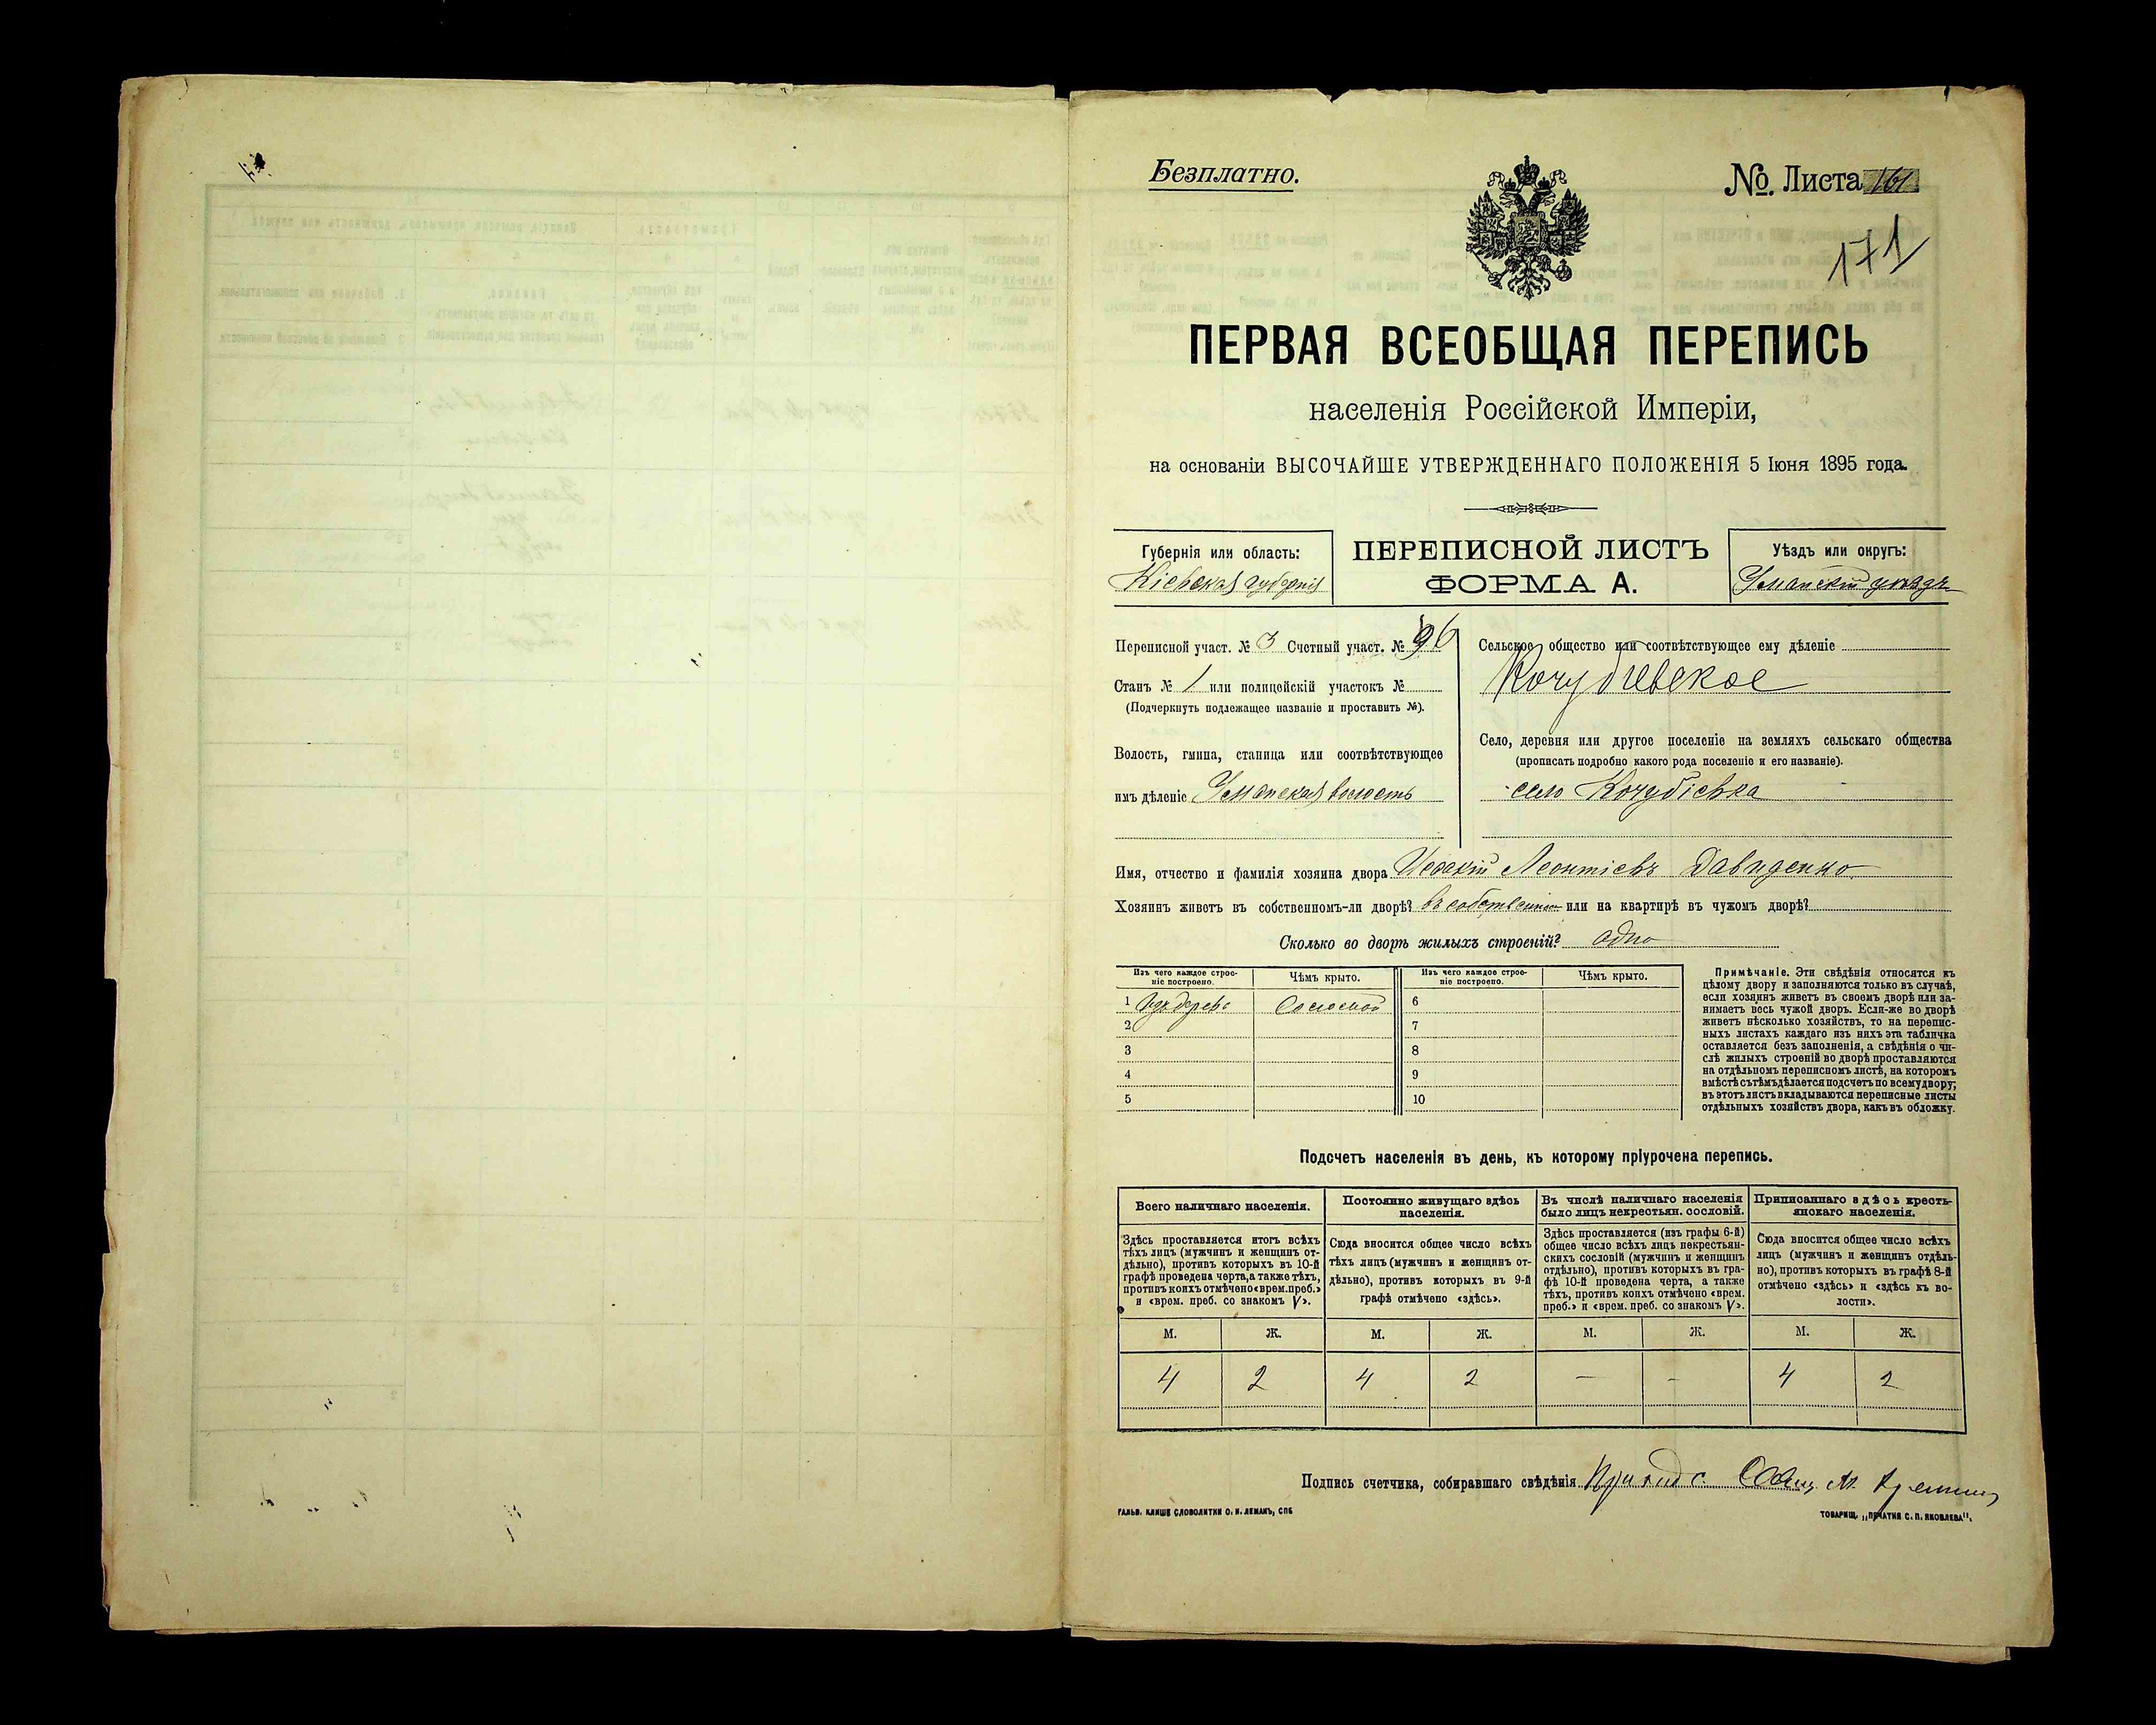 Безплатно.
№. Листа 161
171
ПЕРВАЯ ВСЕОБЩАЯ ПЕРЕПИСЬ
населенія Россійской Имперіи,
на основаніи ВЫСОЧАЙШЕ УТВЕРЖДЕННАГО ПОЛОЖЕНІЯ 5 Іюня 1895 года.
Губернія или область:
Кіевская губернія
ПЕРЕПИСНОЙ ЛИСТЪ
ФОРМА А.
Уѣздъ или округъ:
Уманскій уѣздъ
Переписной участ. № 3 Счетный участ. № 96
Станъ № 1 или полицейскій участокъ №
(Подчеркнуть подлежащее названіе и проставить №).
Волость, гмина, станица или соотвѣтствующее
имъ дѣленіе Уманская волость
Сельское общество или соотвѣтствующее ему дѣленіе
Кочубіевское
Село, деревня или другое поселеніе на земляхъ сельскаго общества
(прописать подробно какого рода поселеніе и его названіе).
село Кочубіевка
Имя, отчество и фамилія хозяина двора Исакій Леонтіевъ Давиденко
Хозяинъ живетъ въ собственномъ-ли дворѣ? въ собственном или на квартирѣ въ чужомъ дворѣ?
Сколько во дворѣ жилыхъ строеній? одно
Изъ чего каждое строе-
ніе построено.
Чѣмъ крыто.
Изъ чего каждое строе-
ніе построено.
Чѣмъ крыто.
1 Изъ дерева Соломой 6
2 7
3 8
4 9
5 10
Примѣчаніе. Эти свѣдѣнія относятся къ
цѣлому двору и заполняются только въ случаѣ,
если хозяинъ живетъ въ своемъ дворѣ или за-
нимаетъ весь чужой дворъ. Если-же во дворѣ
живетъ нѣсколько хозяйствъ, то на перепис-
ныхъ листахъ каждаго изъ нихъ эта табличка
оставляется безъ заполненія, а свѣдѣнія о чи-
слѣ жилыхъ строеній во дворѣ проставляются
на отдѣльномъ переписномъ листѣ, на которомъ
вмѣстѣ съ тѣмъ дѣлается подсчетъ по всему двору;
въ этотъ листъ вкладываются переписные листы
отдѣльныхъ хозяйствъ двора, какъ въ обложку.
Подсчетъ населенія въ день, къ которому пріурочена перепись.
Всего наличнаго населенія.
Здѣсь проставляется итогъ всѣхъ
тѣхъ лицъ (мужчинъ и женщинъ от-
дѣльно), противъ которыхъ въ 10-й
графѣ проведена черта, а также тѣхъ,
противъ коихъ отмѣчено «врем. преб.»
и «врем. преб. со знакомъ V».
Постоянно живущаго здѣсь
населенія.
Сюда вносится общее число всѣхъ
тѣхъ лицъ (мужчинъ и женщинъ от-
дѣльно), противъ которыхъ въ 9-й
графѣ отмѣчено «здѣсь».
Въ числѣ наличнаго населенія
было лицъ некрестьян. сословій.
Здѣсь проставляется (изъ графы 6-й)
общее число всѣхъ лицъ некрестьян-
скихъ сословій (мужчинъ и женщинъ
отдѣльно), противъ которыхъ въ гра-
фѣ 10-й проведена черта, а также
тѣхъ, противъ коихъ отмѣчено «врем.
преб.» и «врем. преб. со знакомъ V».
Приписаннаго здѣсь кресть-
янскаго населенія.
Сюда вносится общее число всѣхъ
лицъ (мужчинъ и женщинъ отдѣль-
но), противъ которыхъ въ графѣ 8-й
отмѣчено «здѣсь» и «здѣсь къ во-
лости».
М. Ж. М. Ж. М. Ж. М. Ж.
4 2 4 2 — - 4 2
Подпись счетчика, собиравшаго свѣдѣнія
ГАЛЬВ. КЛИШЕ СЛОВОЛИТНИ О. И. ЛЕМАНЪ, СПБ
ТОВАРИЩ. „ПЕЧАТНЯ С. П. ЯКОВЛЕВА".